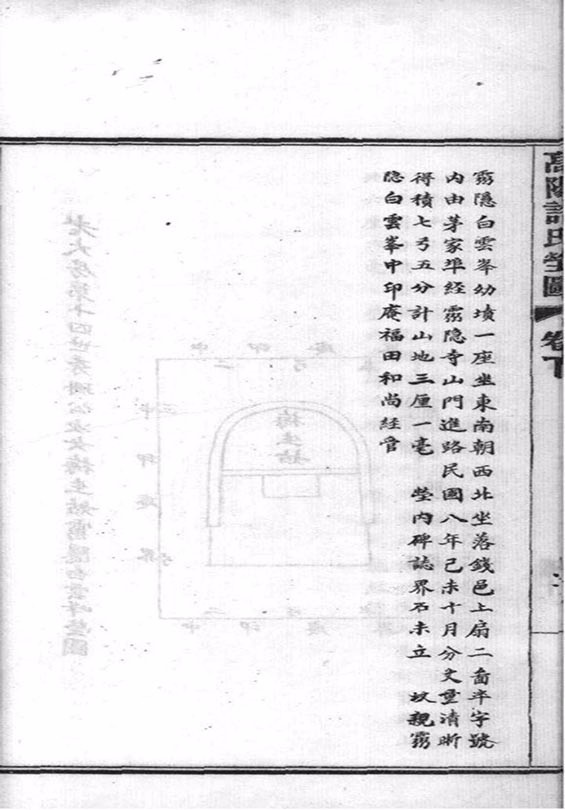 高陽許氏塋圖 卷下
霛隐白雲峯幼墳一座坐東南朝西北坐落錢邑上扇二啚半字號
内由茅家埠經霛隐寺山門進路民國八年己未十月分丈量清晰
得積七弓五分計山地三厘一毫 塋内碑誌界石未立 坟親霛
隐白雲峯中印庵福田和尚経管